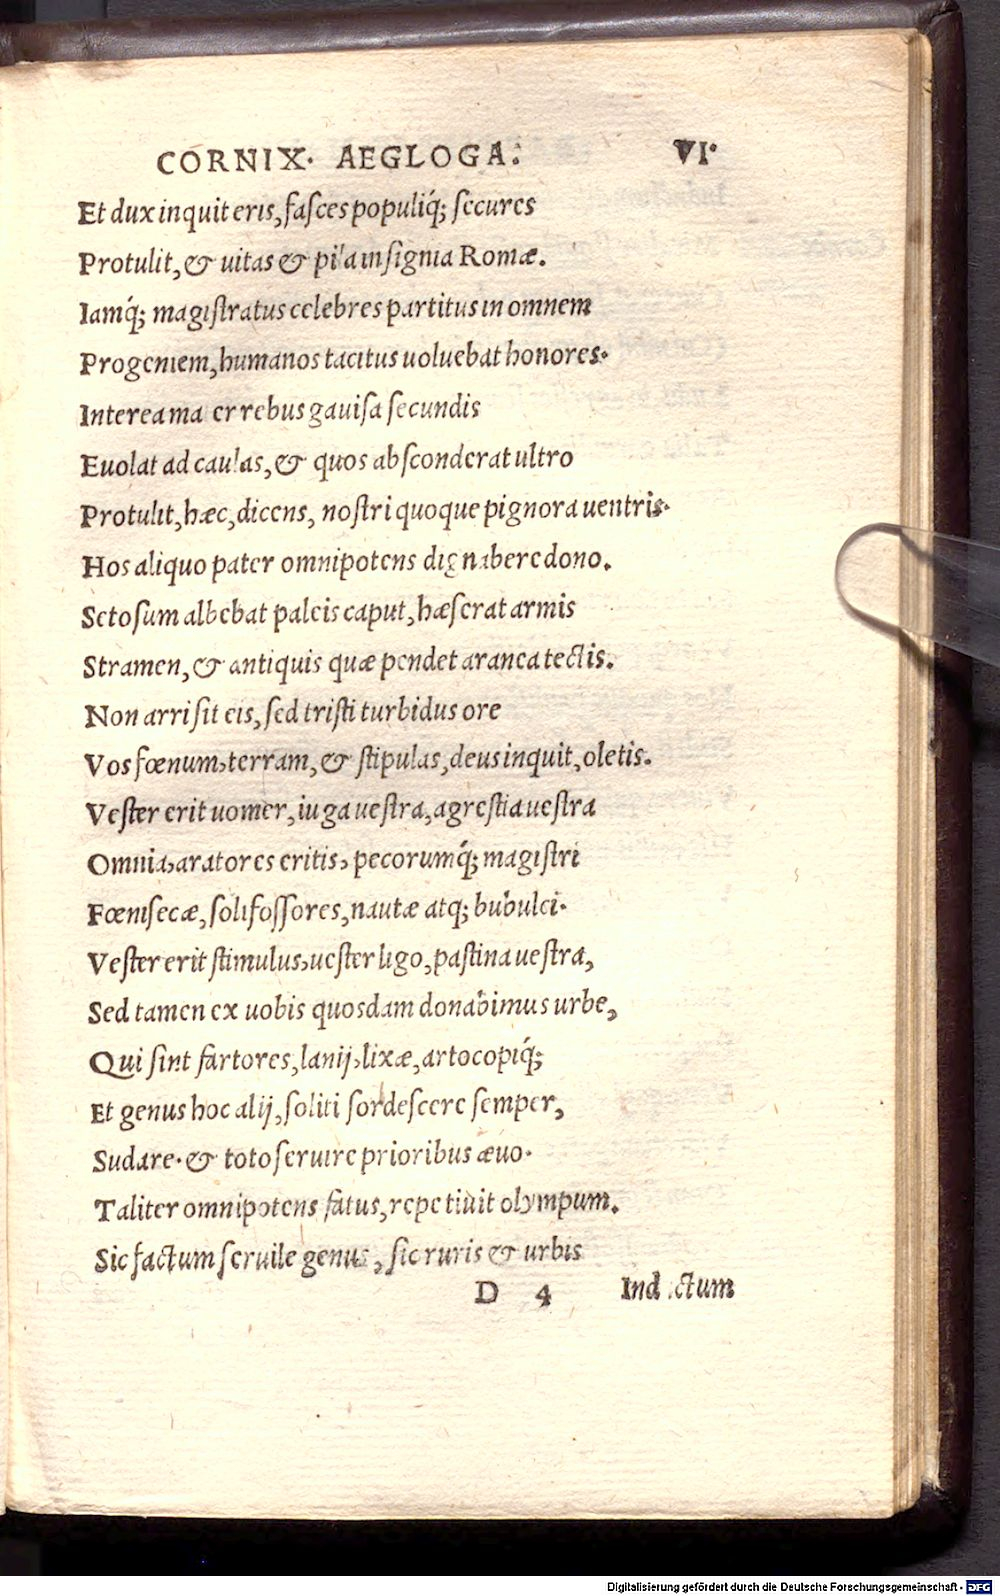 CORNIX· AEGLOGA: VI·
Et dux inquit eris, faſces populiq́; ſecures
Protulit, & uitas & pila inſignia Romæ.
Iamq́; magiſtratus celebres partitus in omnem
Progeniem, humanos tacitus uoluebat honores·
Interea ma er rebus gauiſa ſecundis
Euolat ad caulas, & quos abſconderat ultro
Protulit, hæc, dicens, noſtri quoque pignora uentris·
Hos aliquo pater omnipotens dignabere dono.
Setoſum albebat paleis caput, hæſerat armis
Stramen, & antiquis quæ pendet aranea tectis.
Non arriſit eis, ſed triſti turbidus ore
Vos fœnum, terram, & ſtipulas, deus inquit, oletis.
Veſter erit uomer, iuga ueſtra, agreſtia ueſtra
Omnia, aratores eritis, pecorumq́; magiſtri
Fœniſecæ, ſolifoſſores, nautæ atq; bubulci·
Veſter erit ſtimulus, ueſter ligo, paſtina ueſtra,
Sed tamen ex uobis quoſdam donabimus urbe,
Qui ſint fartores, lanij, lixæ, artocopiq́;
Et genus hoc alij, ſoliti ſordeſcere ſemper,
Sudare· & toto ſeruire prioribus æuo·
Taliter omnipotens fatus, repetiuit olympum.
Sic factum ſeruile genus, ſic ruris & urbis
D 4 Ind ctum
Digitalisierung gefördert durch die Deutsche Forschungsgemeinschaft - DFG